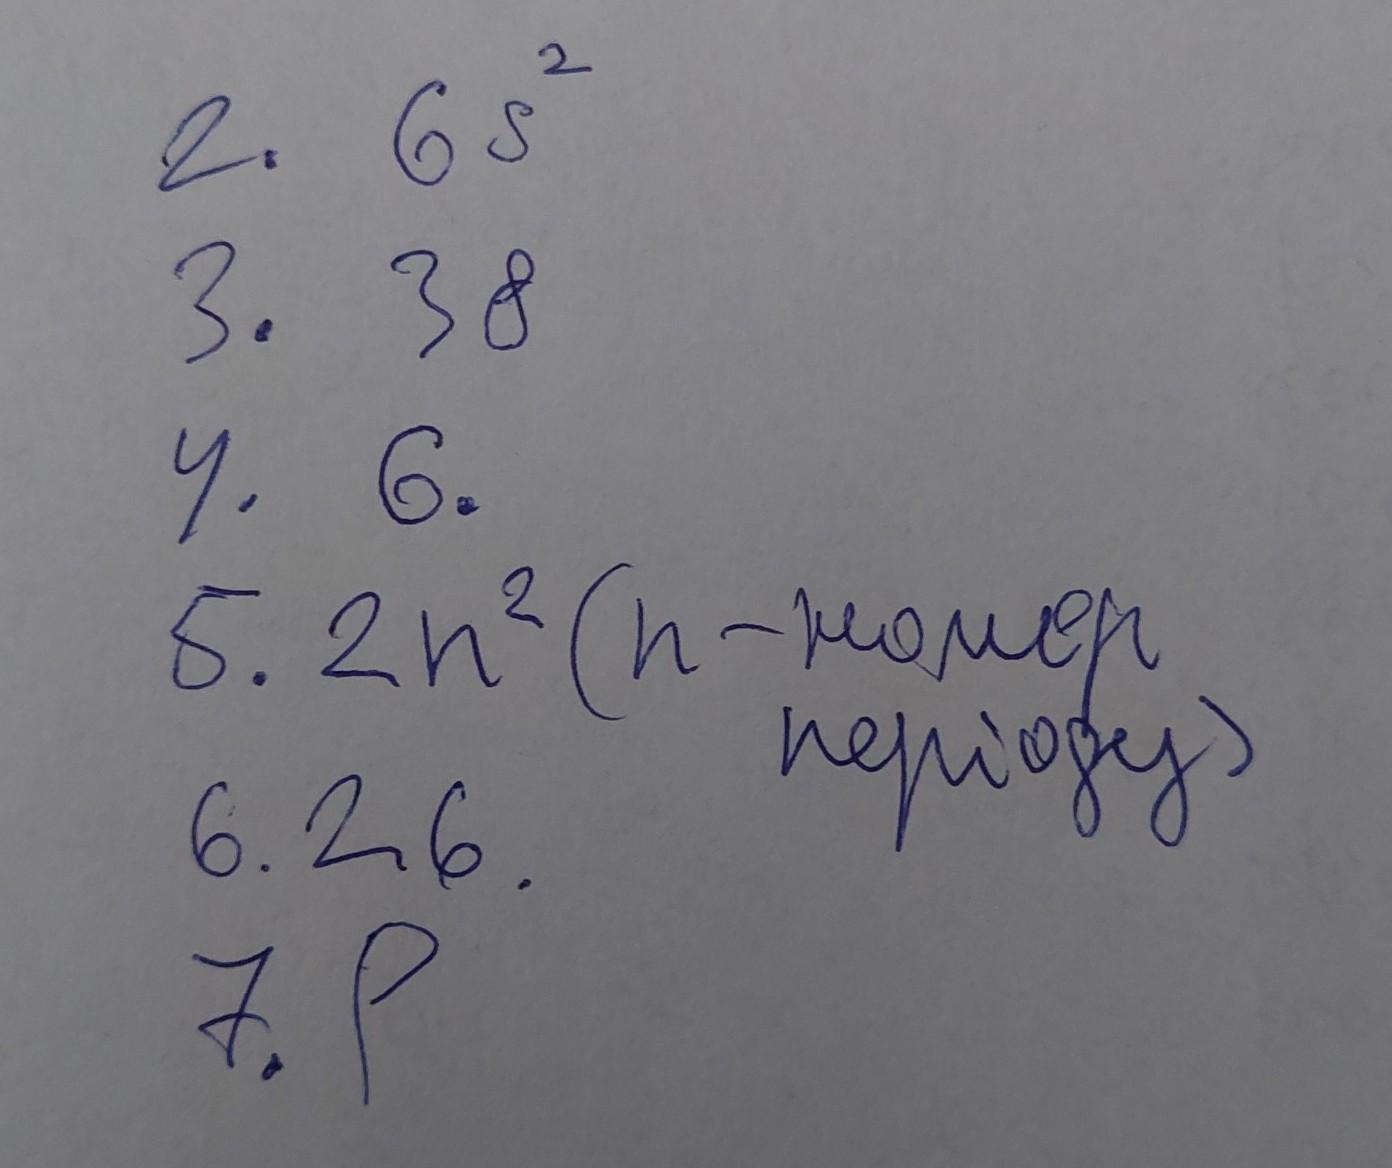 2. 6s²
3. 38
4. 6.
5. 2n² (n - номер
періоду)
6. 26.
7. p